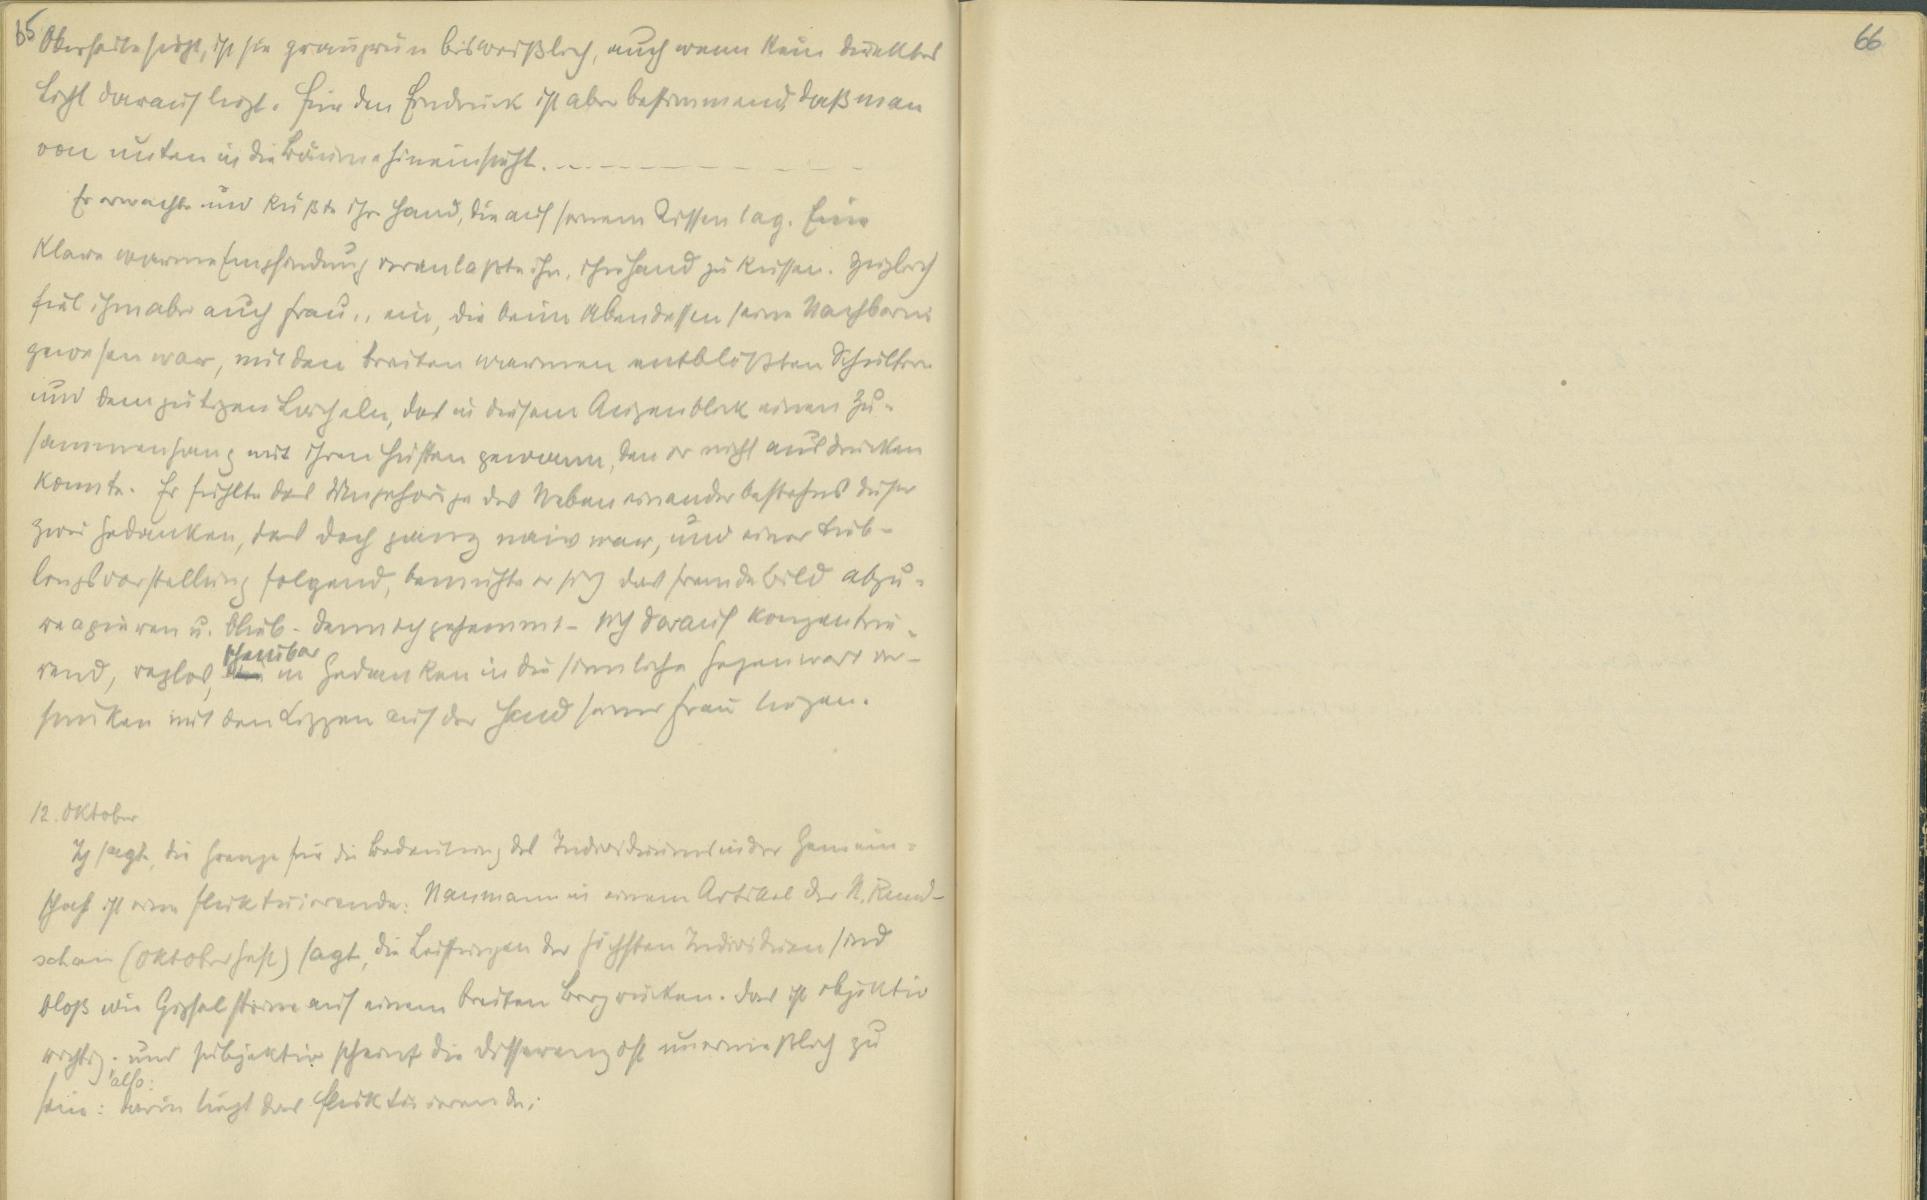 65
Oberseite sieht, ist sie graugrün bis weißlich, auch wenn kein direktes
Licht darauf liegt. Für den Eindruck ist aber bestimmend daß man
von unten in die Bäume hineinsieht. – – – – – – – –
Er erwachte und küßte ihre Hand, die auf seinem Kissen lag. Eine
klare warme Empfindung veranlaßte ihn, ihre Hand zu küssen. Zugleich
fiel ihm aber auch Frau .. ein, die beim Abendessen seine Nachbarin
gewesen war, mit den breiten warmen entblößten Schultern
und dem gütigen Lächeln, das in diesem Augenblick einen Zu-
sammenhang mit ihren Hüften gewann, den er nicht ausdrücken
konnte. Er fühlte das Ungehörige des Nebeneinanderbestehens dieser
zwei Gedanken, das doch ganz naiv war, und einer Lieb-
lingsvorstellung folgend, bemühte er sich das fremde Bild abzu-
reagieren u. blieb - dennoch gehemmt - sich darauf konzentrie-
rend, reglos, scheinbar in Gedanken in die sinnliche Gegenwart ver-
sunken mit den Lippen auf der Hand seiner Frau liegen.
12. Oktober
Ich sagte, die Grenze für die Bedeutung des Individuums in der Gemein-
schaft ist eine fluktuierende: Naumann in einem Artikel der N. Rund-
schau (Oktoberheft) sagt, die Leistungen der höchsten Individuen sind
bloß wie Gipfelsteine auf einem breiten Bergrücken. Das ist objektiv
richtig. und subjektiv scheint die Differenz oft unermeßlich zu
sein: also: darin liegt das Fluktuierende;
66